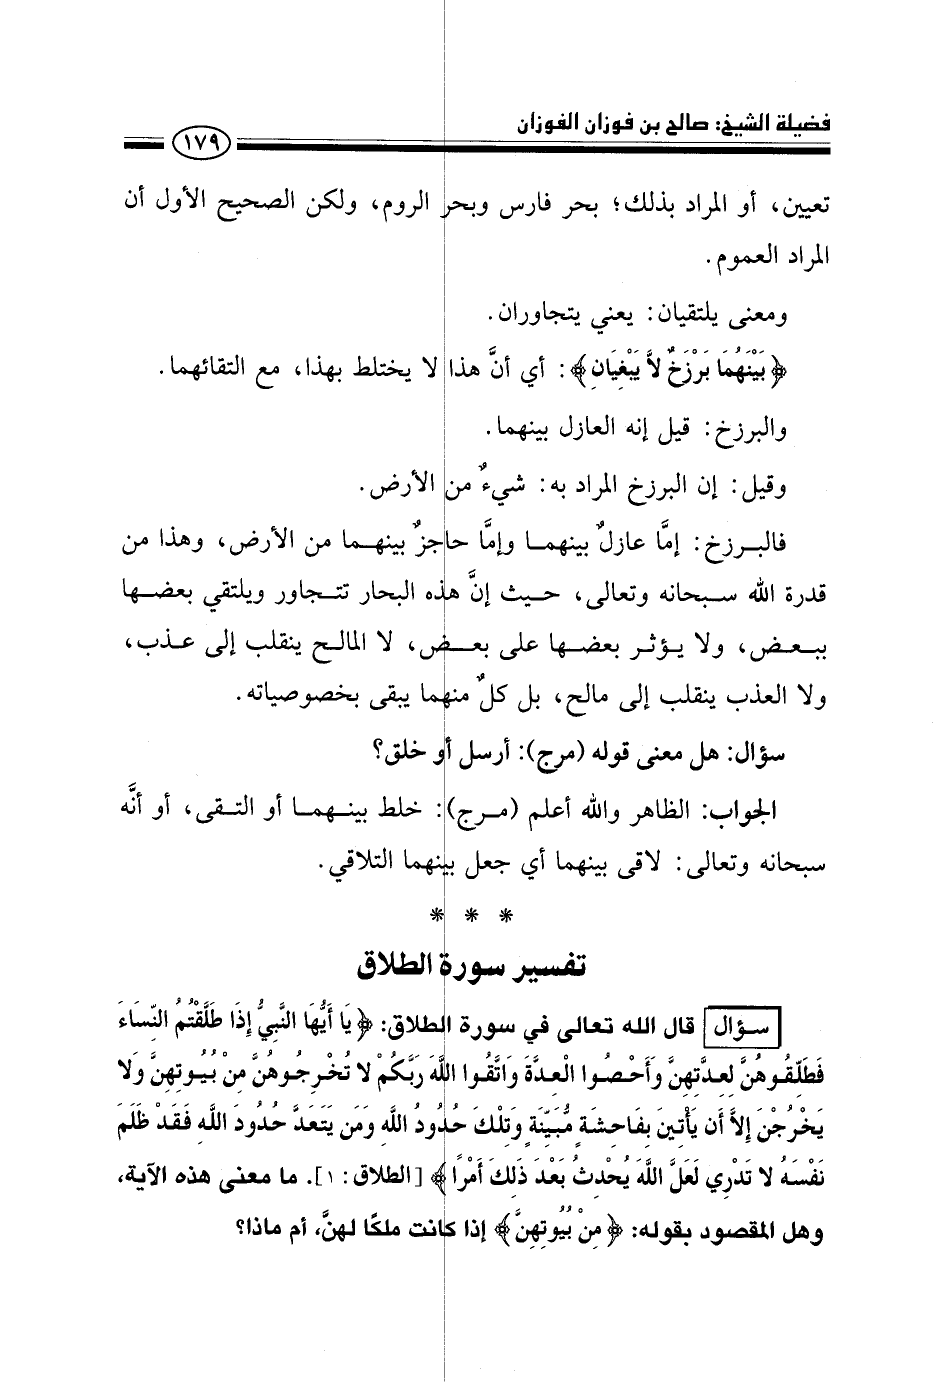 فضيلة الشيخ: صالح بن فوزان الفوزان
١٧٩
تعيين، أو المراد بذلك؛ بحر فارس وبحر الروم، ولكن الصحيح الأول أن
المراد العموم.
ومعنى يلتقيان: يعني يتجاوران.
﴿بَيْنَهُمَا بَرْزَخٌ لاَّ يَبْغِيَانِ﴾: أي أنَّ هذا لا يختلط بهذا، مع التقائهما.
والبرزخ: قيل إنه العازل بينهما.
وقيل: إن البرزخ المراد به: شيءٌ من الأرض.
فالبرزخ: إمَّا عازلٌ بينهما وإمَّا حاجزٌ بينهما من الأرض، وهذا من
قدرة الله سبحانه وتعالى، حيث إنَّ هذه البحار تتجاور ويلتقي بعضها
ببعض، ولا يؤثر بعضها على بعض، لا المالح ينقلب إلى عذب،
ولا العذب ينقلب إلى مالح، بل كلٌ منهما يبقى بخصوصياته.
سؤال: هل معنى قوله (مرج): أرسل أو خلق؟
الجواب: الظاهر والله أعلم (مرج): خلط بينهما أو التقى، أو أنَّه
سبحانه وتعالى: لاقى بينهما أي جعل بينهما التلاقي.
* * *
تفسير سورة الطلاق
سؤال قال الله تعالى في سورة الطلاق: ﴿يَا أَيُّهَا النَّبِيُّ إِذَا طَلَّقْتُمُ النِّسَاءَ
فَطَلِّقُوهُنَّ لِعِدَّتِهِنَّ وَأَحْصُوا الْعِدَّةَ وَاتَّقُوا اللَّهَ رَبَّكُمْ لا تُخْرِجُوهُنَّ مِنْ بُيُوتِهِنَّ وَلا
يَخْرُجْنَ إِلاَّ أَن يَأْتِينَ بِفَاحِشَةٍ مُّبَيِّنَةٍ وَتِلْكَ حُدُودُ اللَّهِ وَمَن يَتَعَدَّ حُدُودَ اللَّهِ فَقَدْ ظَلَمَ
نَفْسَهُ لا تَدْرِي لَعَلَّ اللَّهَ يُحْدِثُ بَعْدَ ذَلِكَ أَمْرًا﴾ [الطلاق: ١]. ما معنى هذه الآية،
وهل المقصود بقوله: ﴿مِنْ بُيُوتِهِنَّ﴾ إذا كانت ملكًا لهنَّ، أم ماذا؟